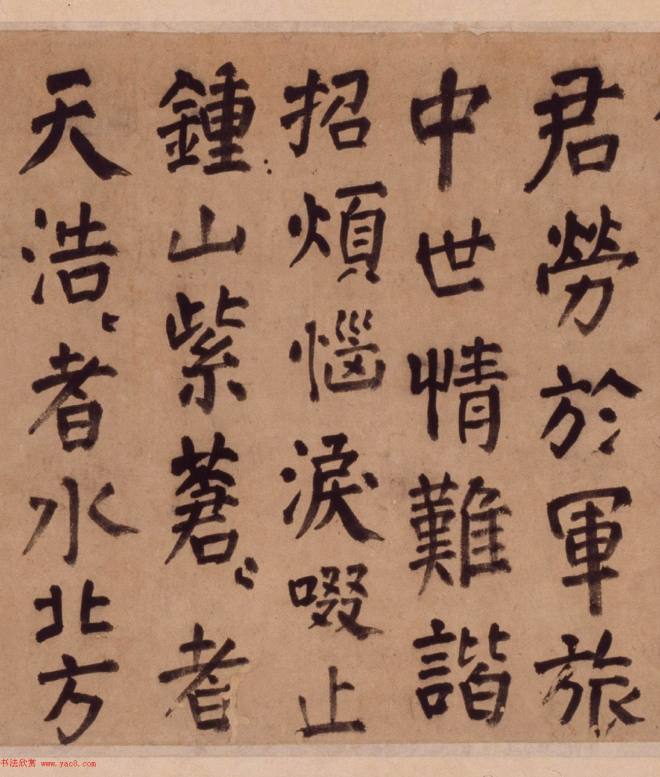 君勞於軍旅
中世情難諧
招煩惱淚啜止
鍾山紫蒼〻者
天浩〻者水北方
书法欣赏 www.yac8.com